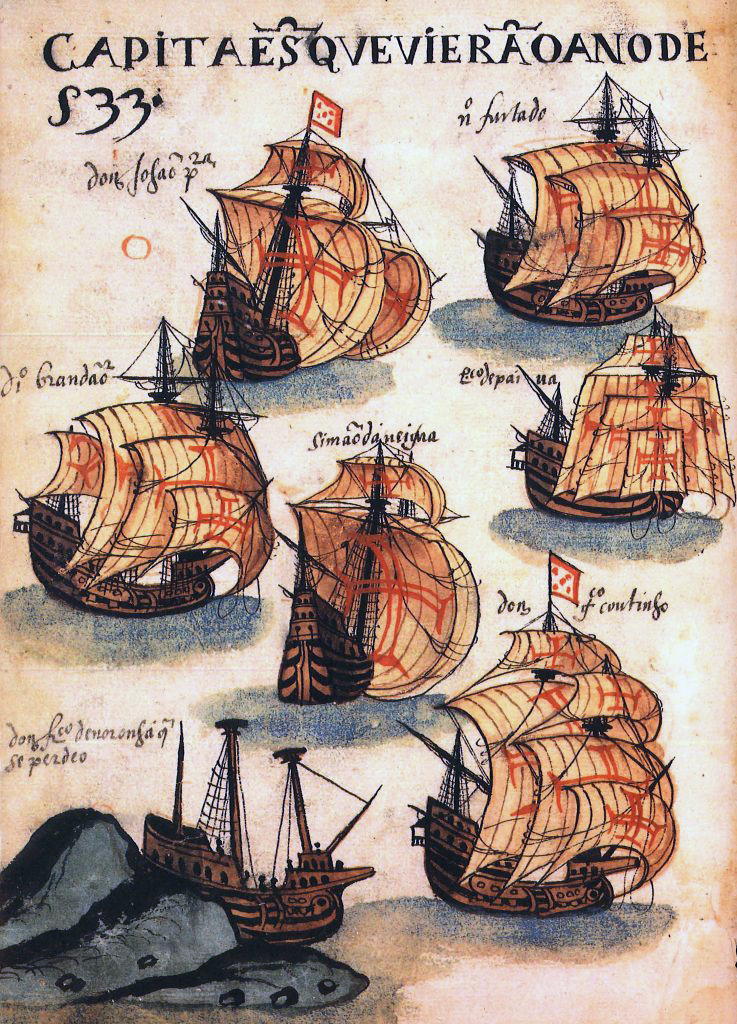 CAPITAE͂S QVE VIERÃO O ANO DE
533·
dom Johaõ pᵃ
nº furtado
dº brandaõ
frᶜᵒ de pai ua
Simaõ da ueigua
dom gᶜᵒ coutinho
dom frᶜᵒ de noronha q̃
se perdeo